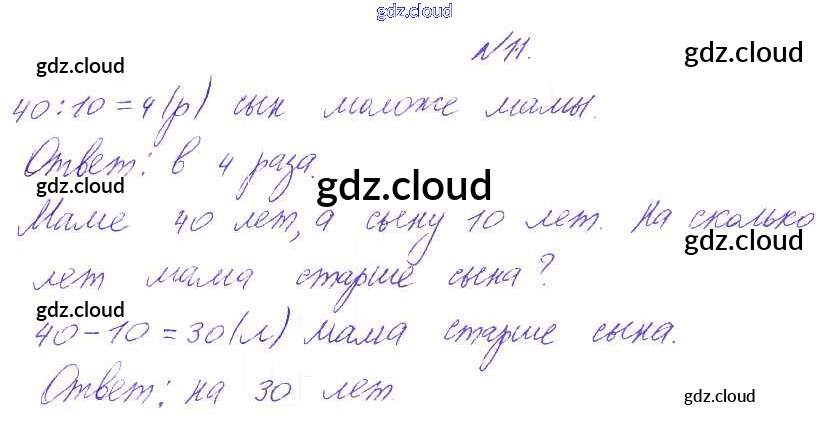 gdz.cloud
№ 11.
gdz.cloud
gdz.cloud
40:10=4(р) сын моложе мамы.
Ответ: в 4 раза.
gdz.cloud
gdz.cloud
Маме 40 лет, а сыну 10 лет. На сколько
gdz.cloud
лет мама старше сына?
gdz.cloud
40-10=30(л) мама старше сына.
Ответ: на 30 лет.
gdz.cloud